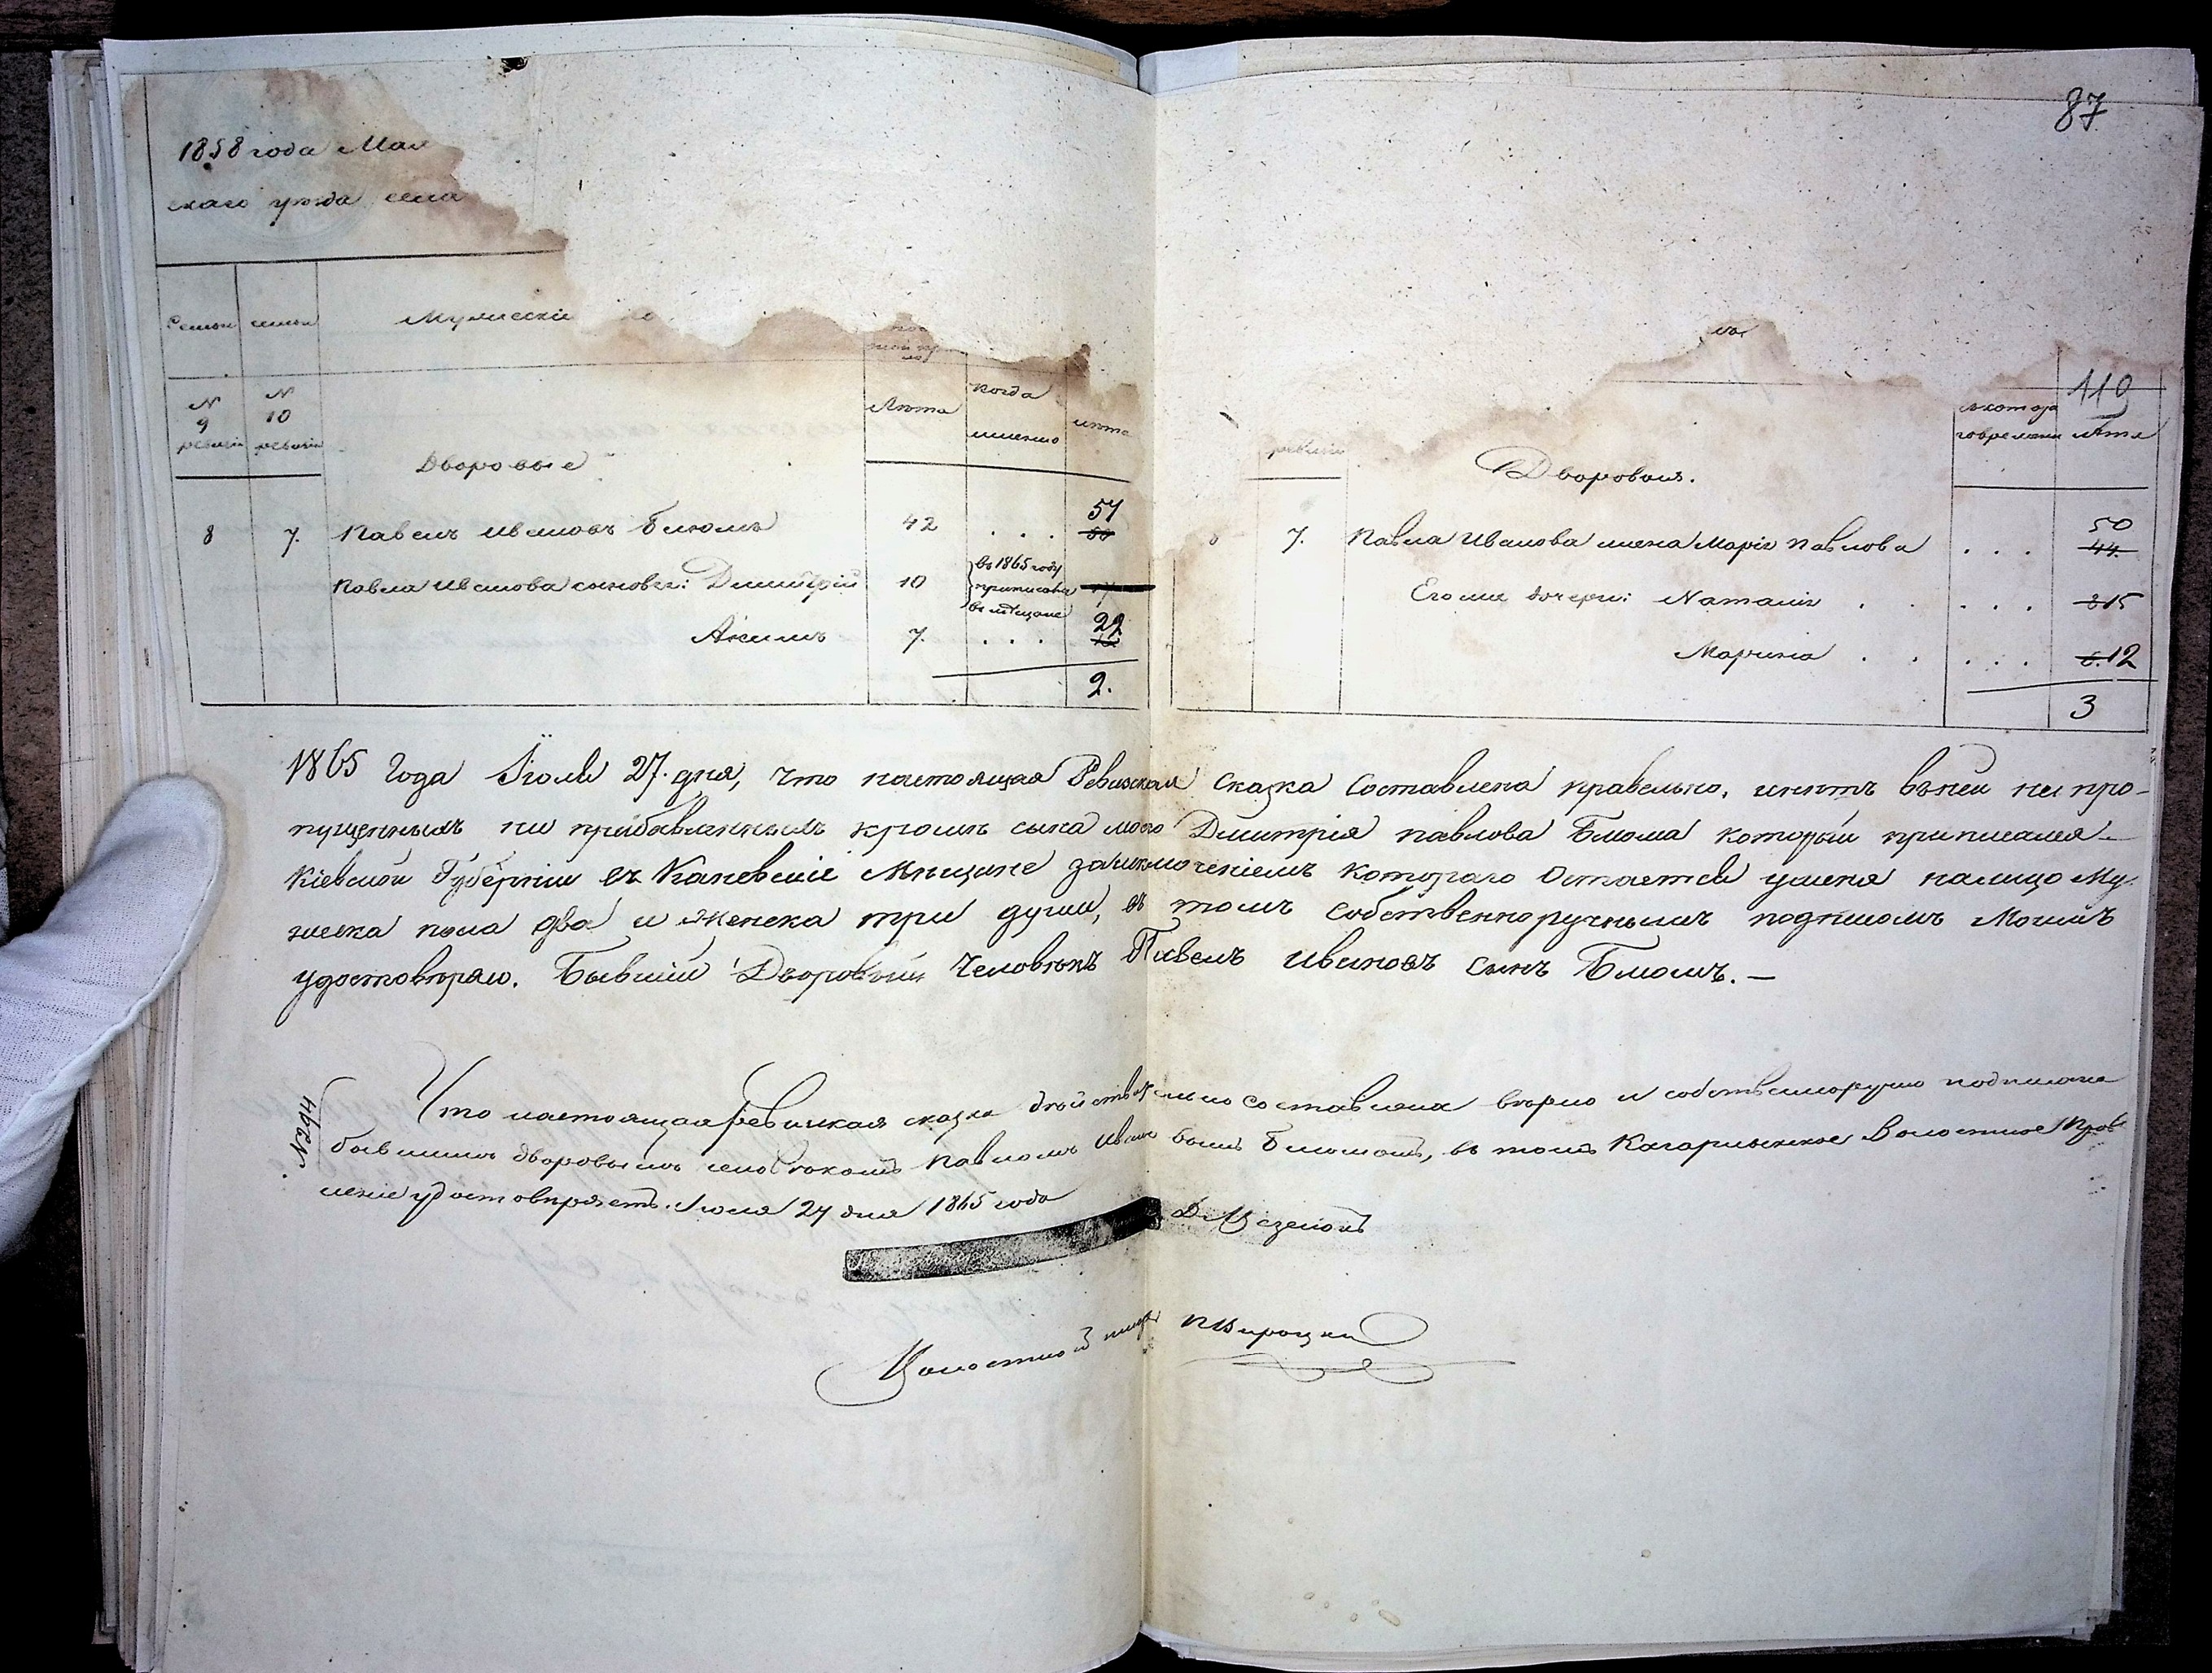 87
1858 года Мая
скаго уѣзда села
Семьи семьи Мужескій
110
N 9 ревизіи
N 10 ревизіи
Лѣта
когда именно
лѣта
ревизіи
съ котора
говремени лѣта
Дворовые
Дворовыя.
8 7. Павелъ Ивановъ Блюмъ 42 . . . 57 50
7. Павла Иванова жена Марія Павлова . . . 50 44.
Павла Иванова сыновья: Димитрій 10 въ 1865 году приписанъ въ мѣщане 17
Его же дочери: Наталія . . . . . 8 15
Акимъ 7. . . . 22
Марина . . . . . 6. 12
2.
3
1865 Года Іюля 27. дня, что настоящая Ревизская Сказка Составлена правельно, инѣтъ въ ней ни про-
пущенныхъ ни прибавланныхъ кромѣ сына моего Дмитрія павлова Блюма который приписался
Кіевской Губерніи въ Каневскіе Мѣщане заиключеніемъ котораго Остается уменя налицо Му-
жеска пола два и Женска три души, въ томъ Собственноручнымъ подписомъ Моимъ
удостовѣраю. Бывшій Дворовый Человѣкъ Павелъ ивановъ Сынъ Блюмъ. —
N 294
Что настоящая Ревизская сказка дѣйствительно составлена вѣрно и собственноручно подписана
бывшимъ дворовымъ человѣкомъ Павломъ Ивановымъ Блюмомъ, въ томъ Кагарлыкское Волостное Прав
леніе удостовѣряетъ. Іюля 27 дня 1865 года
Волостной писарь